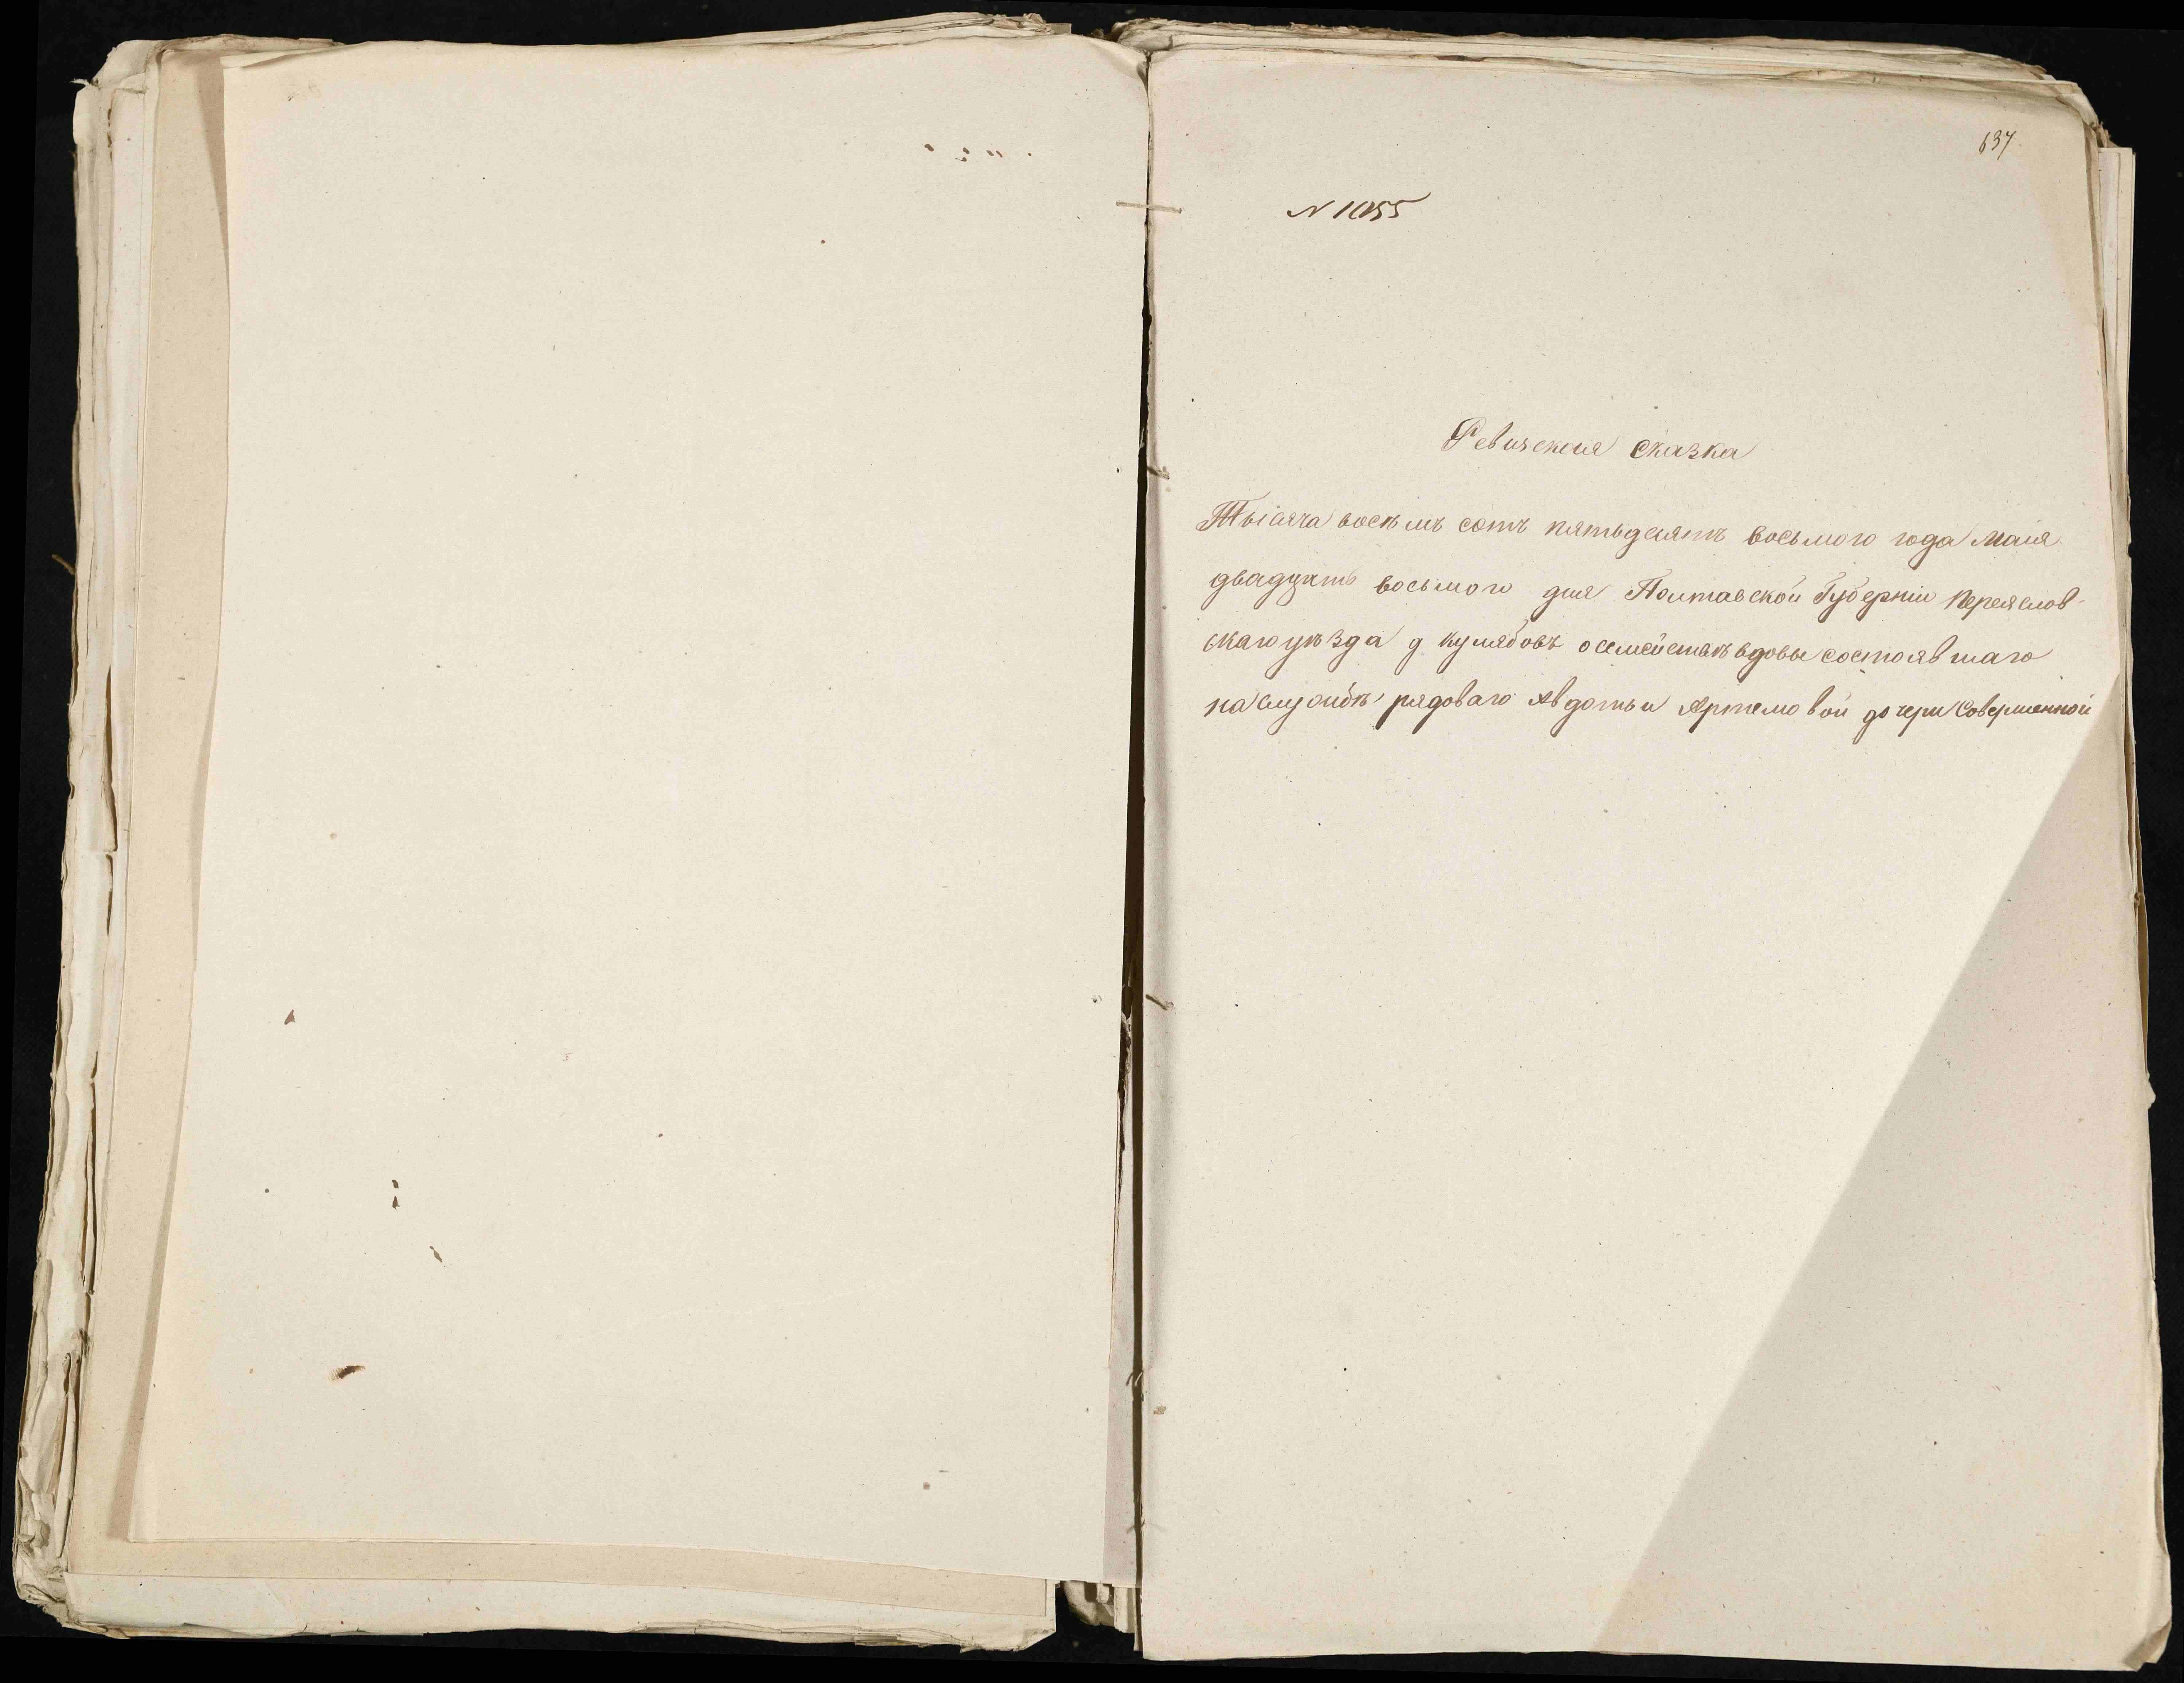 637
N 1055
Ревизская сказка
Тысяча восемь сотъ пятьдесятъ восьмого года Маія
двадцать восьмого дня Полтавской Губерніи Переяслов-
скаго уѣзда д. Кулябовъ о семействѣ вдовы состоявшаго
на службѣ рядоваго Авдотьи Артемовой дочери Совершенной